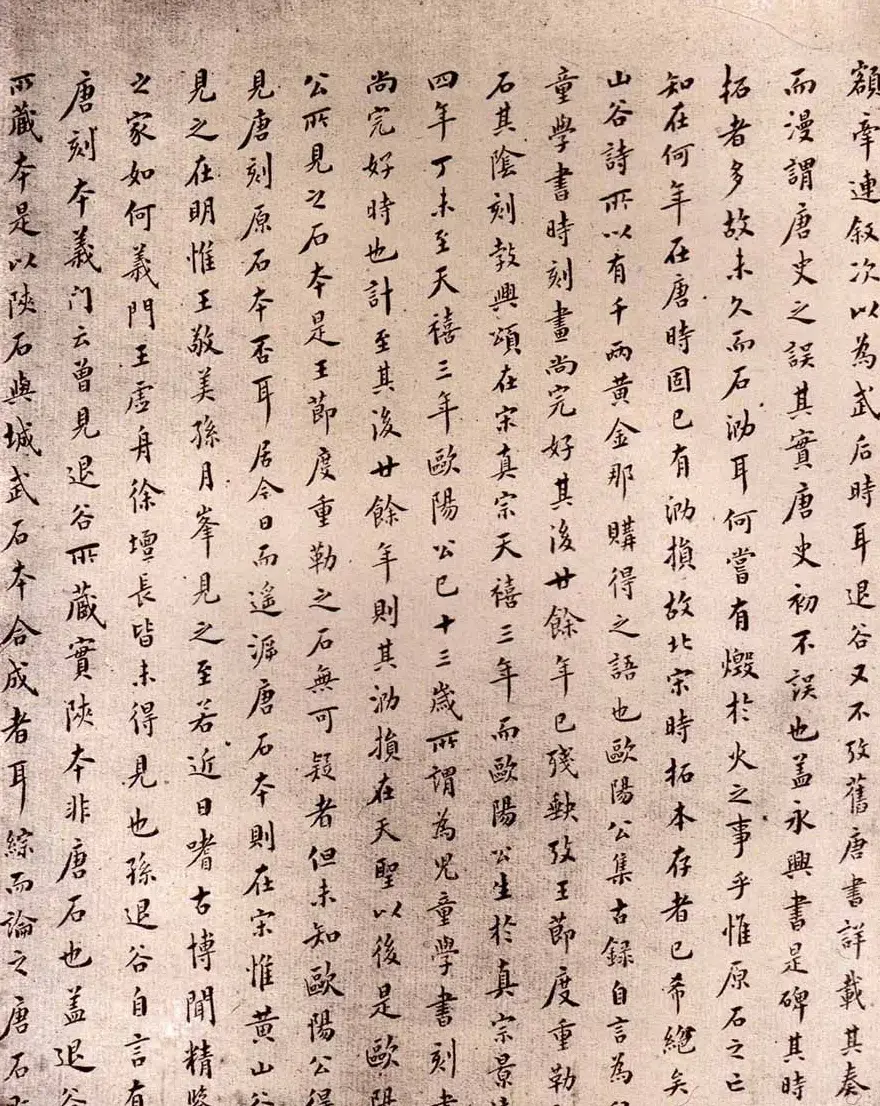 額牽連叙次以為武后時耳退谷又不攷舊唐書詳載其奏
而漫謂唐史之誤其實唐史初不誤也盖永興書是碑其時
拓者多故未久而石泐耳何嘗有燬於火之事乎惟原石之亡
知在何年在唐時固已有泐損故北宋時拓本存者已希絶矣
山谷詩所以有千兩黃金那購得之語也歐陽公集古録自言為
童學書時刻畫尚完好其後廿餘年已殘缺攷王節度重勒
石其陰刻敎興頌在宋真宗天禧三年而歐陽公生於真宗景
四年丁未至天禧三年歐陽公已十三歲所謂為兒童學書刻
尚完好時也計至其後廿餘年則其泐損在天聖以後是歐陽
公所見之石本是王節度重勒之石無可疑者但未知歐陽公得
見唐刻原石本否耳居今日而遥溯唐石本則在宋惟黃山谷
見之在明惟王敬美孫月峯見之至若近日嗜古博聞精鑒
之家如何義門王虛舟徐壇長皆未得見也孫退谷自言有
唐刻本義门云曾見退谷所藏實陝本非唐石也盖退谷
所藏本是以陝石與城武石本合成者耳綜而論之唐石